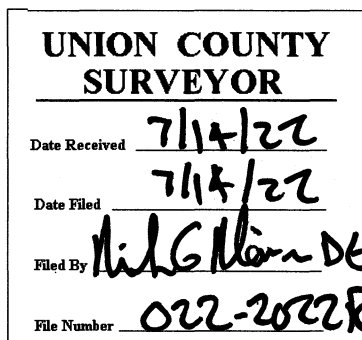 UNION COUNTY
SURVEYOR
Date Received 7/14/22
Date Filed 7/14/22
Filed By
File Number 022-2022